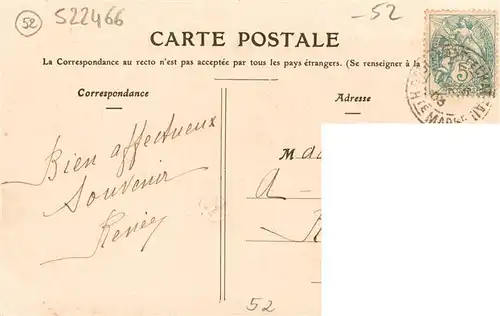 52
522466
-52
CARTE POSTALE
La Correspondance au recto n'est pas acceptée par tous les pays étrangers. (Se renseigner à la
Correspondance
Adresse
5
Hte MARNE
Bien affectueux
Souvenir
Renée
Mad
a -
52